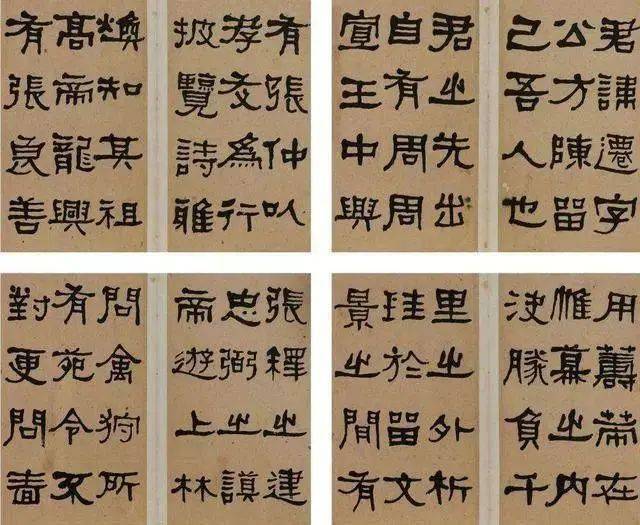 君諱遷字
公方陳留
己吾人也
君之先出
自有周周
宣王中興
有張仲以
孝友為行
披覽詩雅
煥知其祖
高帝龍興
有張良善
用籌策在
帷幕之内
決勝負千
里之外析
珪於留文
景之間有
張釋之建
忠弼之謨
帝遊上林
問禽狩所
有苑令不
對更問嗇